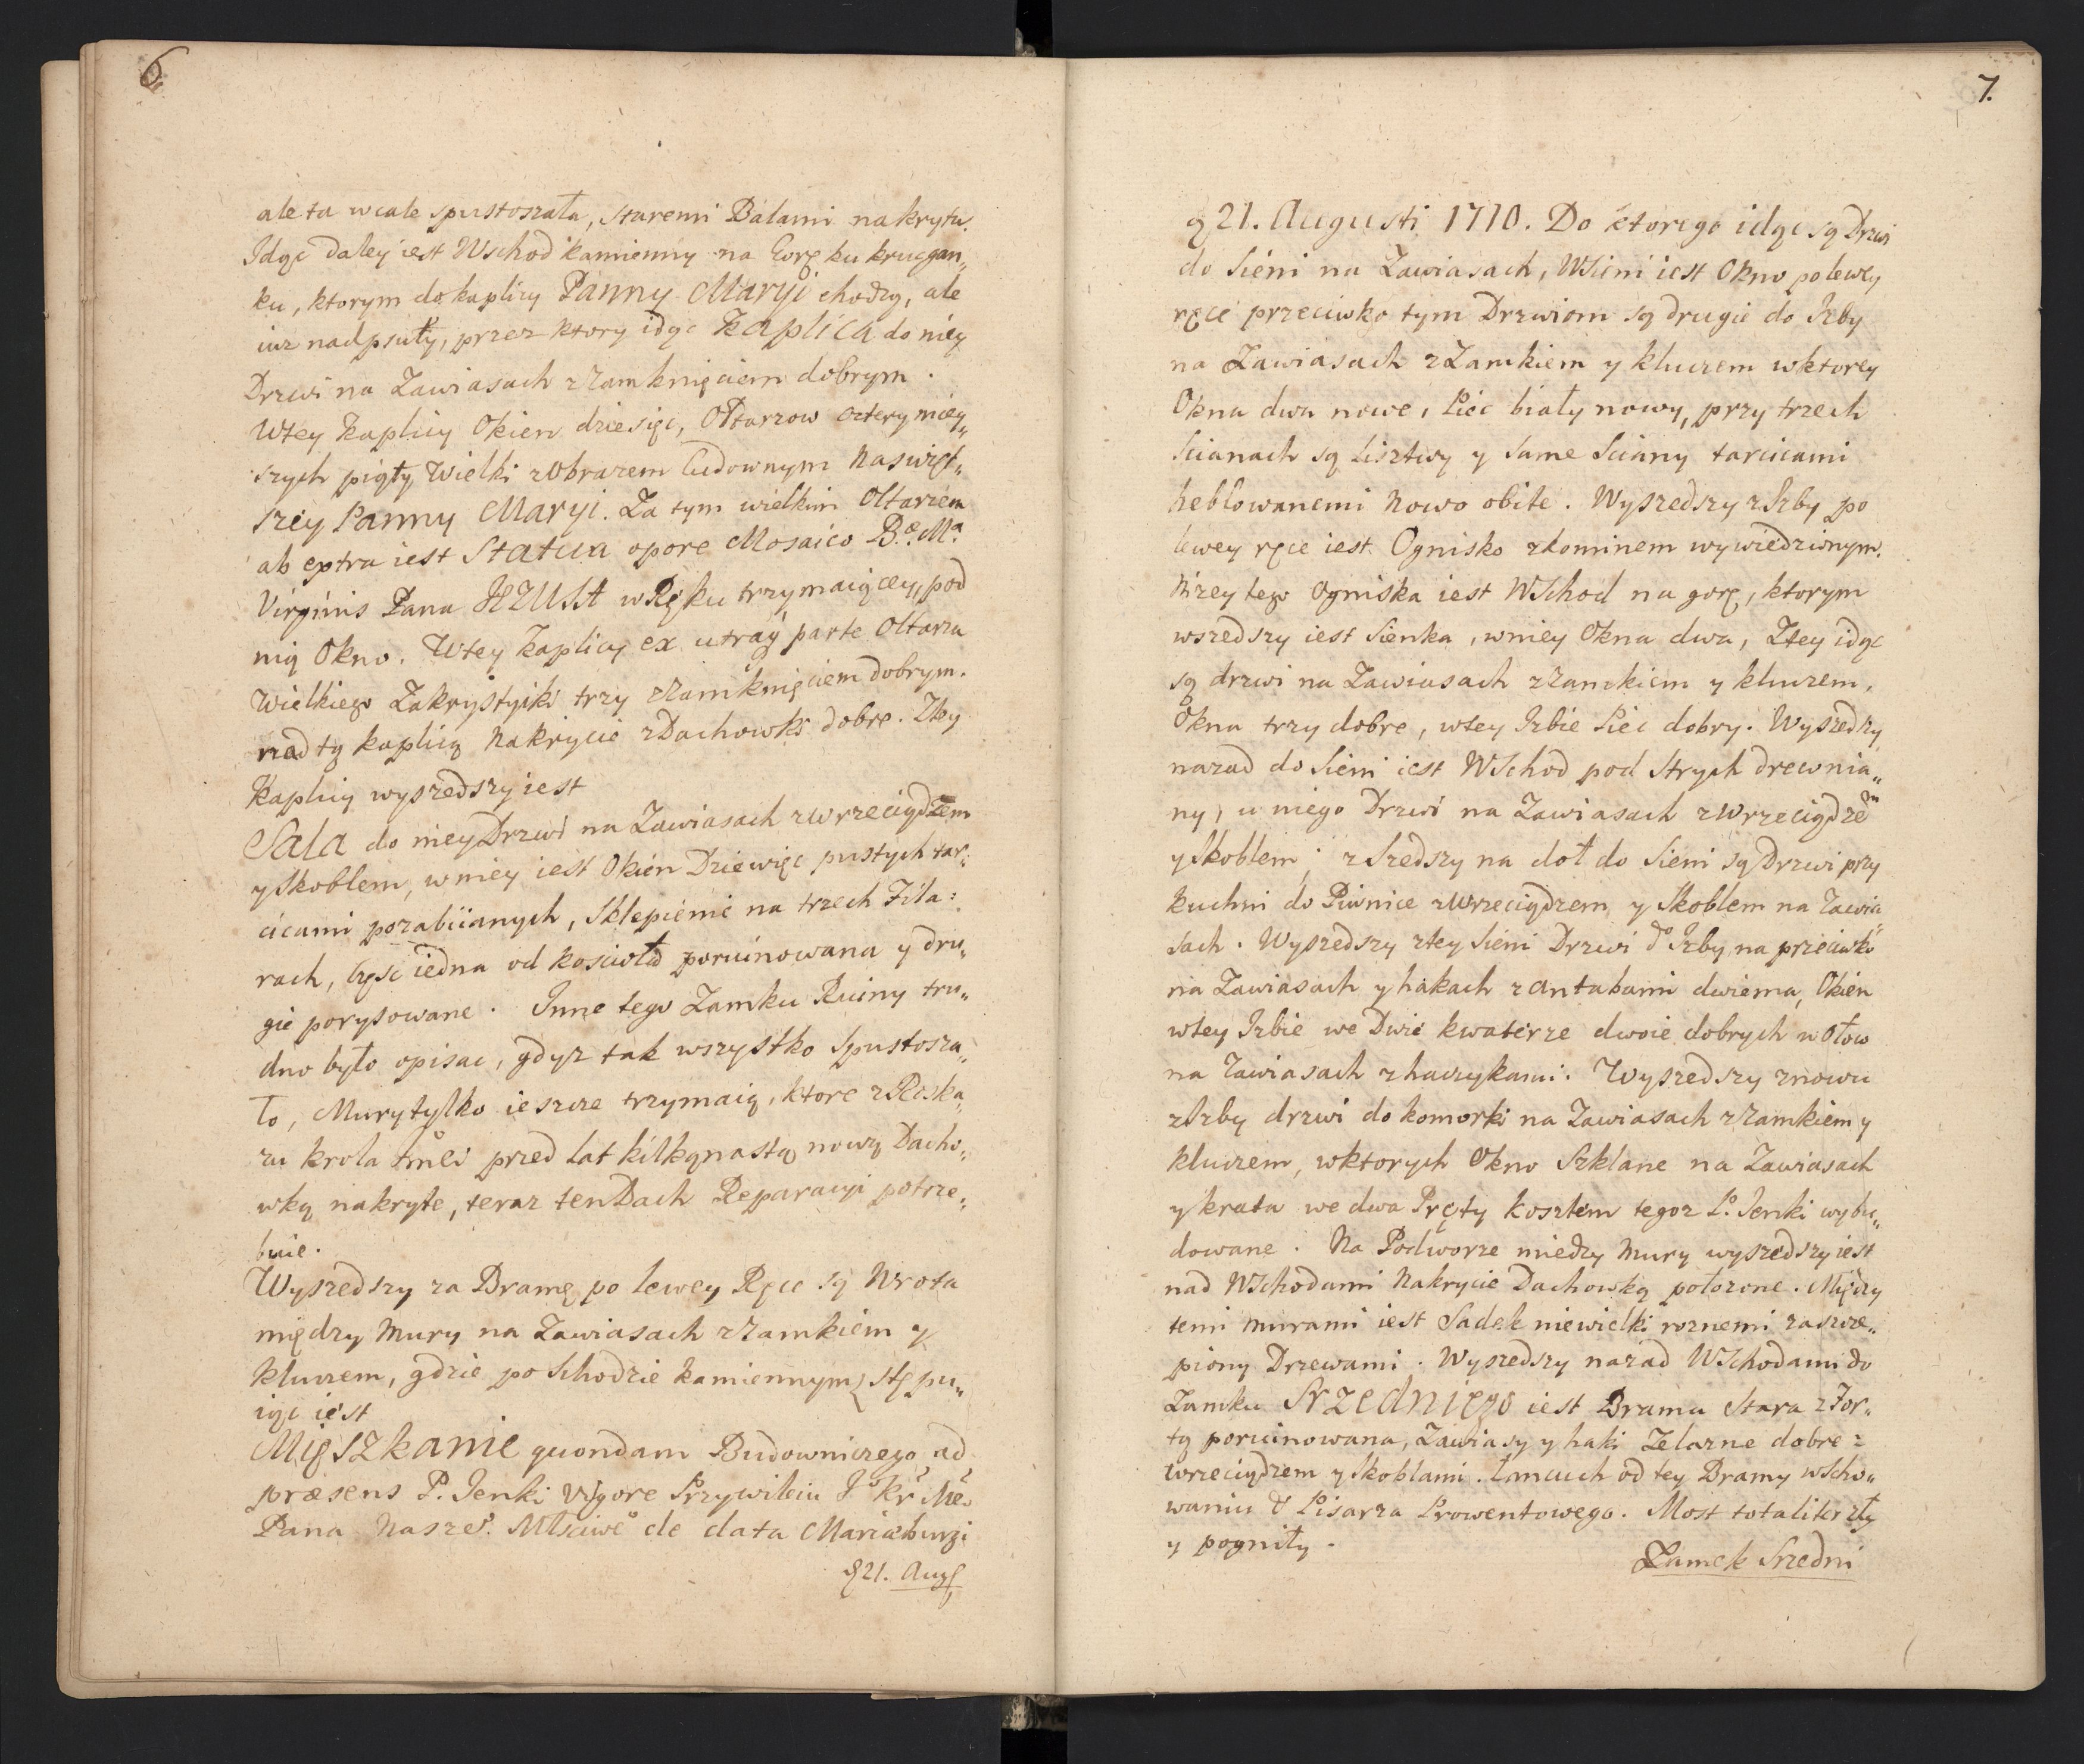 6
ale ta wcale spustoszała, staremi Balami nakryta.
Idąc daley iest Wschod kamienny na Gorę ku krugan„
ku, ktorym do kaplicy Panny Maryi chodzą, ale
iuz nadpsuty, przez ktory idąc Kaplica do niey
Drzwi na Zawiasach z Zamknięciem dobrym.
Wtey Kaplicy Okien dziesięc, Ołtarzow cztery mniey„
szych piąty Wielki z Obrazem Cudownym Naswięt„
szey Panny Maryi. Za tym wielkim Oltarzem
ab extra iest Statua opere Mosaico B.æ M.a
Virginis Pana JEZUSA w Ręku trzymaiącey, pod
nią Okno. Wtey Kaplicy ex utraq parte Oltarza
Wielkiego Zakrystyiki trzy z Zamknięciem dobrym.
nad tą kaplicą Nakrycie z Dachowki dobre. Ztey
Kaplicy wyszedszy iest
Sala do niey Drzwi na Zawiasach z Wrzeciądzem
y Skoblem, w niey iest Okien Dziewięc pustych tar„
cicami pozabiianych, Sklepienie na trzech Fila:
rach, częsc iedna od kosciola poruinowana y dru„
gie porysowane. Inne tego Zamku Ruiny tru„
dno było opisac, gdyz tak wszystko Spustosza„
ło, Mury tylko ieszcze trzymaią, ktore z Roska„
zu krola Jmci przed lat kilkąnastą nową Dacho„
wką nakryte, teraz ten Dach Reparacyi potrze„
buie.
Wyszedszy za Bramę po lewey Ręce są Wrota
między Mury na Zawiasach z Zamkiem y
kluczem, gdzie po Schodzie kamiennym stępu„
iąc iest
Mięszkanie quondam Budowniczego, ad
præsens P. Jenki vigore Przywileiu Jo Kr Mci
Pana Naszeo Młsciweo de data Mariæburgi
d 21. Aug
7.
d 21. Augusti 1710. Do ktorego idąc są Drzwi
do Sieni na Zawiasach, W Sieni iest Okno po lewey
ręce przeciwko tym Drzwiom są drugie do Izby
na Zawiasach z Zamkiem y kluczem w ktorey
Okna dwa nowe, Piec biały nowy, przy trzech
Scianach są Lisztwy y same Sciany tarcicami
heblowanemi Nowo obite. Wyszedszy z Izby po
lewey ręce iest Ognisko z kominem wywiedzionym.
Nizey tego Ogniska iest WSchod na gorę, ktorym
wszedszy iest Sienka, w niey Okna dwa, Ztey idąc
są drzwi na Zawiasach z Zamkiem y kluczem,
Okna trzy dobre, wtey Izbie Piec dobry. Wyszedszy
nazad do Sieni iest WSchod pod Strych drewnia„
ny, u niego Drzwi na Zawiasach z Wrzeciądzem
y Skoblem; z Szedszy na doł do Sieni są Drzwi przy
kuchni do Piwnice z Wrzeciądzem y Skoblem na Zawia„
sach. Wyszedszy ztey Sieni Drzwi do Izby na przeciwko
na Zawiasach y hakach z antabami dwiema, Okien
wtey Izbie we Dwie kwaterze dwoie dobrych w Ołow
na Zawiasach z haczykami. Wyszedszy znowu
z Izby drzwi do komorki na Zawiasach z Zamkiem y
kluczem, w ktorych Okno Szklane na Zawiasach
y krata we dwa Pręty kosztem tegoz P. Jenki wybu„
dowane. Na Podworze między Mury wyszedszy iest
nad WSchodami Nakrycie Dachowką położone. Między
temi murami iest Sadek niewielki roznemi zaszcze„
piony Drzewami. Wyszedszy nazad WSchodami do
Zamku Srzedniego iest Brama Stara z For„
tą poruinowana, Zawiasy y haki Zelazne dobre z
Wrzeciądzem y Skoblami. Lancuch od tey Bramy w Scho„
waniu u Pisarza Prowentowego. Most totaliter zły
y pogniły.
Zamek Srzedni